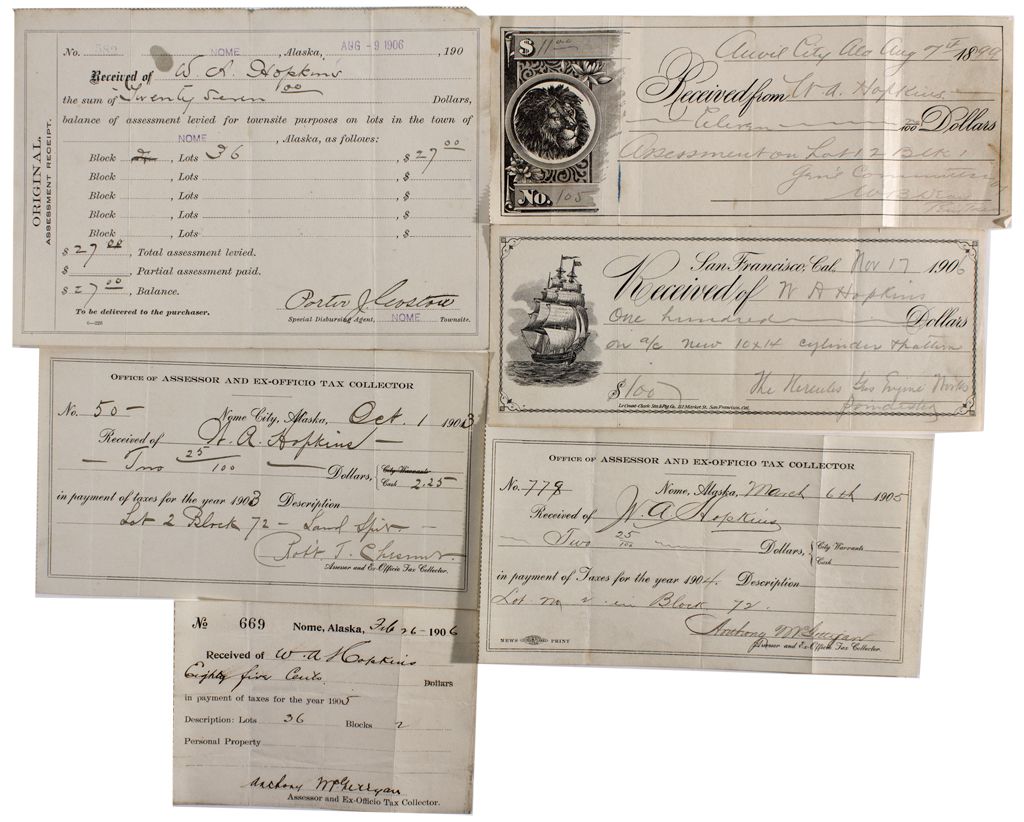 No. 582 NOME, Alaska, AUG - 9 1906, 190
Received of W. A. Hopkins
the sum of Twenty Seven 00 Dollars,
balance of assessment levied for townsite purposes on lots in the town of
NOME, Alaska, as follows:
Block, Lots 36, $ 27 00
Block, Lots, $
Block, Lots, $
Block, Lots, $
Block, Lots, $
$ 27 00, Total assessment levied.
$, Partial assessment paid.
$ 27 00, Balance.
To be delivered to the purchaser.
6-225
Special Disbursing Agent, NOME Townsite.
ORIGINAL.
ASSESSMENT RECEIPT.
$ 11 00
Anvil City Ala Aug 7th 1899
Received from W. A. Hopkins
Eleven /100 Dollars
Assessment on Lot 12 Blk 1
No. 105
San Francisco, Cal. Nov 17 1906
Received of W A Hopkins
One hundred Dollars
on a/c new 10x14 cylinder & pattern
$100
The Hercules Gas Engine Works
OFFICE OF ASSESSOR AND EX-OFFICIO TAX COLLECTOR
No. 50 Nome City, Alaska, Oct. 1 1903
Received of W. A. Hopkins
Two 25/100 Dollars, City Warrants
Cash 2.25
in payment of taxes for the year 1903 Description
Lot 2 Block 72 - Sand Spit
Assessor and Ex-Officio Tax Collector.
OFFICE OF ASSESSOR AND EX-OFFICIO TAX COLLECTOR
No. 778 Nome, Alaska, March 6th 1905
Received of W. A. Hopkins
Two 25/100 Dollars, City Warrants
Cash
in payment of Taxes for the year 1904. Description
Lot no 2 in Block 72.
Anthony McGettigan
NEWS PRINT
Assessor and Ex-Officio Tax Collector.
No 669 Nome, Alaska, Feb 26 - 1906
Received of W A Hopkins
Eighty five Cents. Dollars
in payment of taxes for the year 1905
Description: Lots 36 Blocks 2
Personal Property
Assessor and Ex-Officio Tax Collector.